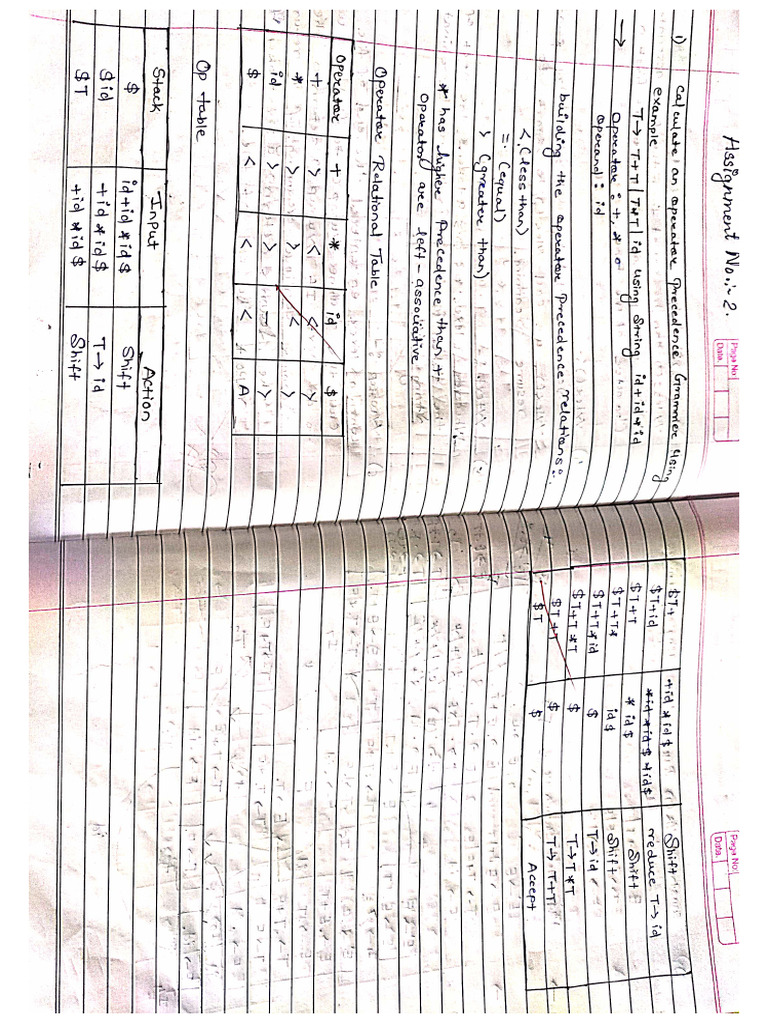 Assignment No.:- 2.
Page No.
Date.
1) Calculate an operator Precedence Grammer Using
example
T → T+T | T*T | id using String id+id*id
→ Operator : +, *
Operand : id
building the operator Precedence relations:.
<. (less than)
=. (equal)
> (greater than)
* has higher Precedence than +
Operator are left-associative
Operator Relational Table
Operator + * id $
+ > < < >
* > > < >
id > > - >
$ < < < A
Op table
Stack Input Action
$ id+id*id$ Shift
$id +id*id$ T → id
$T +id*id$ Shift
Page No.
Date.
$T+ +id*id$ Shift
$T+id *id*id$*id$ reduce T → id
$T+T *id$ Shift
$T+T* id$ Shift
$T+T*id $ T → id
$T+T*T $ T → T*T
$T+T $ T → T+T
$T $ Accept